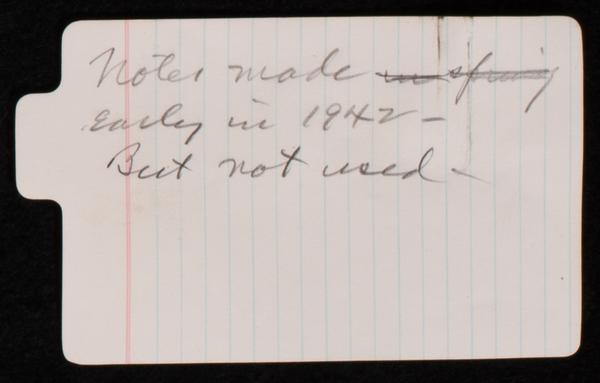 Notes made in spring
early in 1942 -
But not used -